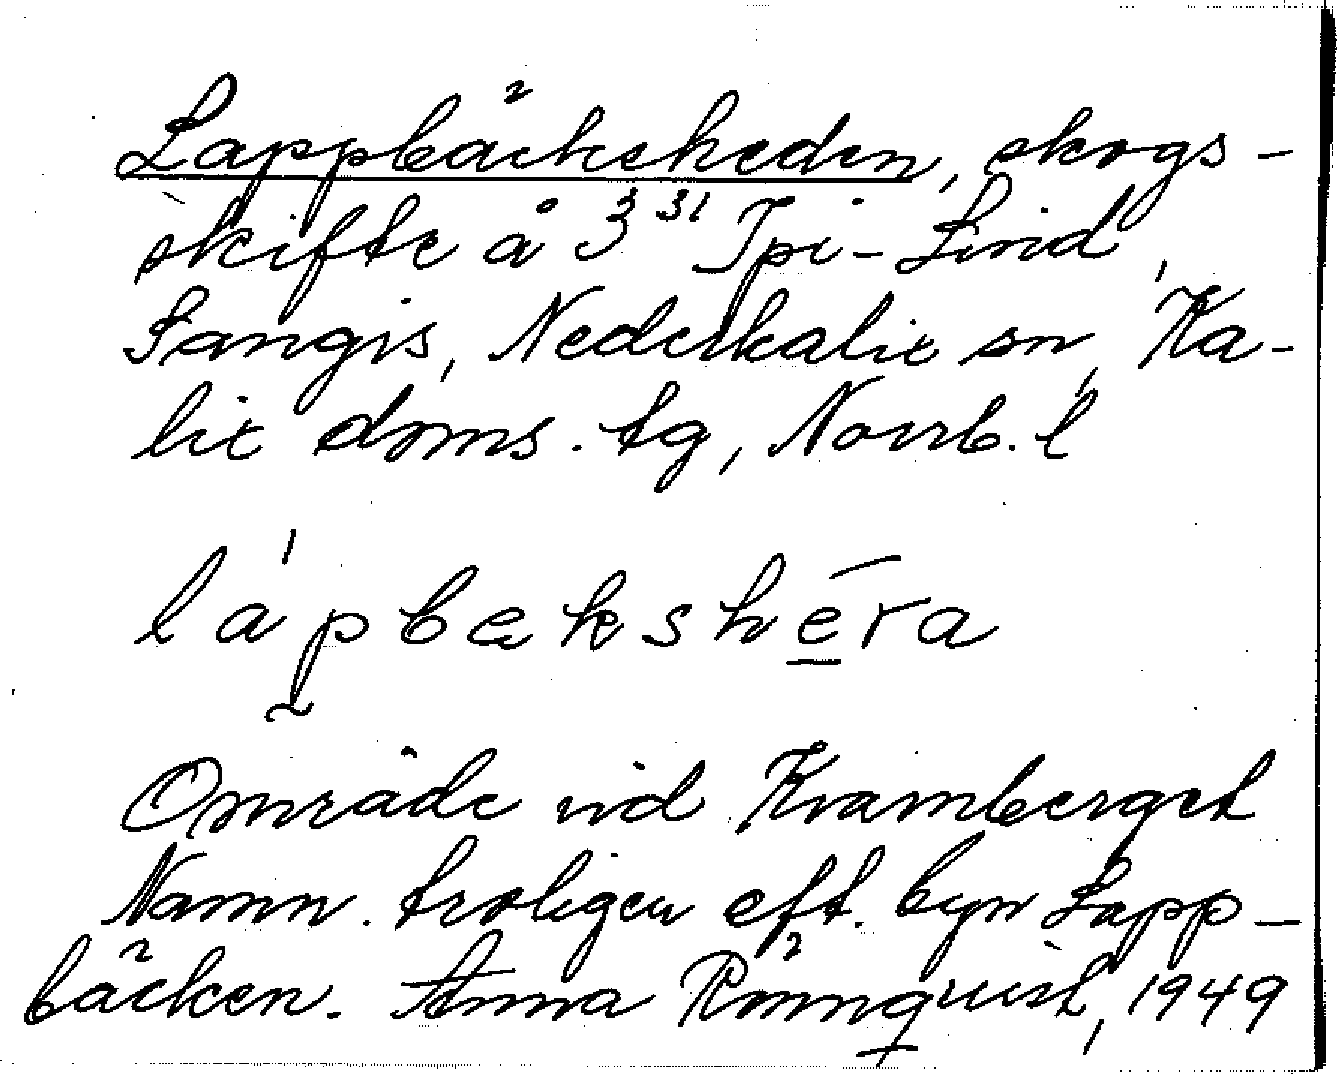 Lappbäcksheden, skogs-
skifte å 3³ ³¹ Ipi-Lind,
Sangis, Nederkalix sn, Ka-
lix doms. tg, Norrb. l
lápbækshēra
Område vid Kramberget
Namn. troligen eft. byn Lapp-
bäcken. Anna Rönnqvist, 1949